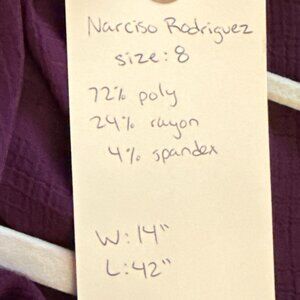 Narciso Rodriguez
size: 8
72% poly
24% rayon
4% spandex
W: 14"
L: 42"